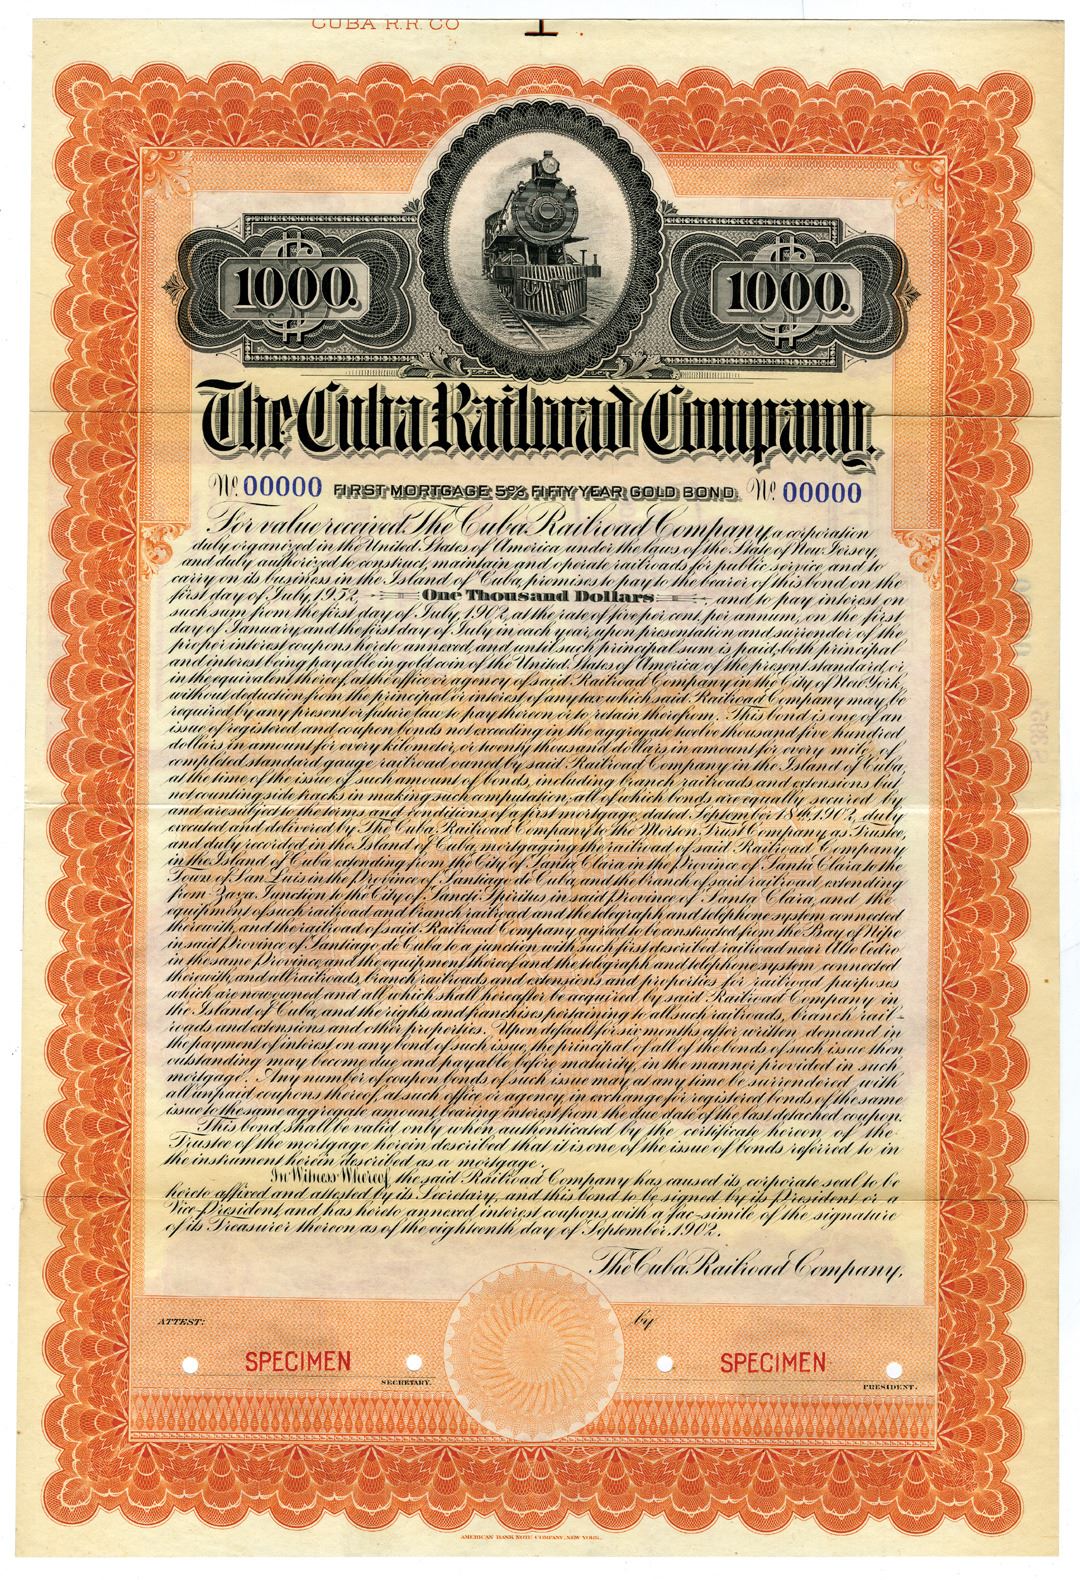 CUBA R.R. CO
1000. 1000.
The Cuba Railroad Company.
No. 00000 FIRST MORTGAGE 5% FIFTY YEAR GOLD BOND. No. 00000
For value received, The Cuba Railroad Company, a corporation
duly organized in the United States of America under the laws of the State of New Jersey,
and duly authorized to construct, maintain and operate railroads for public service and to
carry on its business in the Island of Cuba, promises to pay to the bearer of this bond on the
first day of July, 1952, One Thousand Dollars, and to pay interest on
such sum from the first day of July, 1902, at the rate of five per cent. per annum, on the first
day of January, and the first day of July in each year, upon presentation and surrender of the
proper interest coupons hereto annexed, and until such principal sum is paid, both principal
and interest being payable in gold coin of the United States of America of the present standard, or
in the equivalent thereof, at the office or agency of said Railroad Company in the City of New York
without deduction from the principal or interest of any tax which said Railroad Company may be
required by any present or future law to pay thereon or to retain therefrom. This bond is one of an
issue of registered and coupon bonds not exceeding in the aggregate twelve thousand five hundred
dollars in amount for every kilometer, or twenty thousand dollars in amount for every mile, of
completed standard gauge railroad owned by said Railroad Company in the Island of Cuba,
at the time of the issue of such amount of bonds, including branch railroads and extensions but
not counting side tracks in making such computation; all of which bonds are equally secured by
and are subject to the terms and conditions of a first mortgage, dated September 18th, 1902, duly
executed and delivered by The Cuba Railroad Company to the Morton Trust Company as Trustee,
and duly recorded in the Island of Cuba, mortgaging the railroad of said Railroad Company
in the Island of Cuba extending from the City of Santa Clara in the Province of Santa Clara to the
Town of San Luis in the Province of Santiago de Cuba, and the branch of said railroad extending
from Zaza Junction to the City of Sancti Spiritus in said Province of Santa Clara, and the
equipment of such railroad and branch railroad and the telegraph and telephone system connected
therewith, and the railroad of said Railroad Company agreed to be constructed from the Bay of Nipe
in said Province of Santiago de Cuba to a junction with such first described railroad near Alto Cedro
in the same Province, and the equipment thereof and the telegraph and telephone system connected
therewith, and all railroads, branch railroads and extensions and properties for railroad purposes
which are now owned and all which shall hereafter be acquired by said Railroad Company in
the Island of Cuba, and the rights and franchises pertaining to all such railroads, branch rail-
roads and extensions and other properties. Upon default for six months after written demand in
the payment of interest on any bond of such issue, the principal of all of the bonds of such issue then
outstanding may become due and payable before maturity, in the manner provided in such
mortgage. Any number of coupon bonds of such issue may at any time be surrendered with
all unpaid coupons thereof, at such office or agency, in exchange for registered bonds of the same
issue to the same aggregate amount, bearing interest from the due date of the last detached coupon.
This bond shall be valid only when authenticated by the certificate hereon of the
Trustee of the mortgage herein described that it is one of the issue of bonds referred to in
the instrument herein described as a mortgage.
In Witness Whereof, the said Railroad Company has caused its corporate seal to be
hereto affixed and attested by its Secretary, and this bond to be signed by its President or a
Vice-President, and has hereto annexed interest coupons with a fac-simile of the signature
of its Treasurer thereon as of the eighteenth day of September, 1902.
The Cuba Railroad Company,
ATTEST: by
SPECIMEN SPECIMEN
SECRETARY. PRESIDENT.
AMERICAN BANK NOTE COMPANY, NEW YORK.